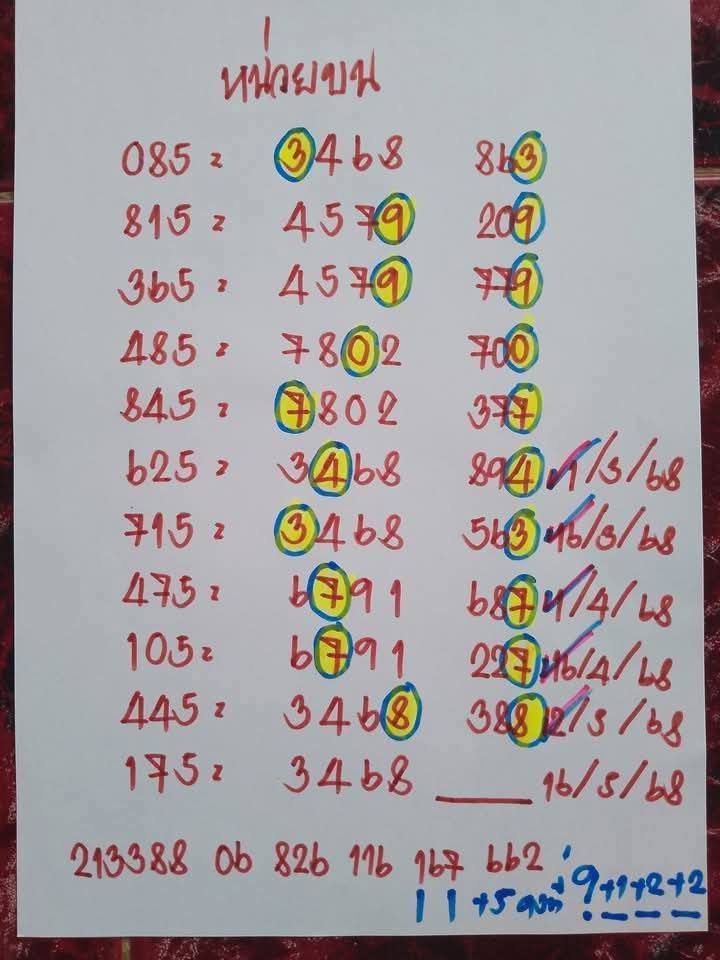 หน่วยบน
085 = 3468 863
815 = 4579 209
365 = 4579 779
485 = 7802 700
845 = 7802 377
625 = 3468 894 ✓1/3/68
715 = 3468 563 ✓16/3/68
475 = 6791 687 ✓1/4/68
105 = 6791 227 ✓16/4/68
445 = 3468 388 ✓2/5/68
175 = 3468 ____ 16/5/68
213388 06 826 116 167 662
11+5 คงที่ 9+1+2+2